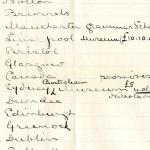 Bolton
Brussels
Manchester Grammar Scho
Liverpool Museum (£10.10.
Bristol
Glasgow
Canada promises
Sydney Australian Museum
Dundee
Edinburgh
Greenock
Dublin